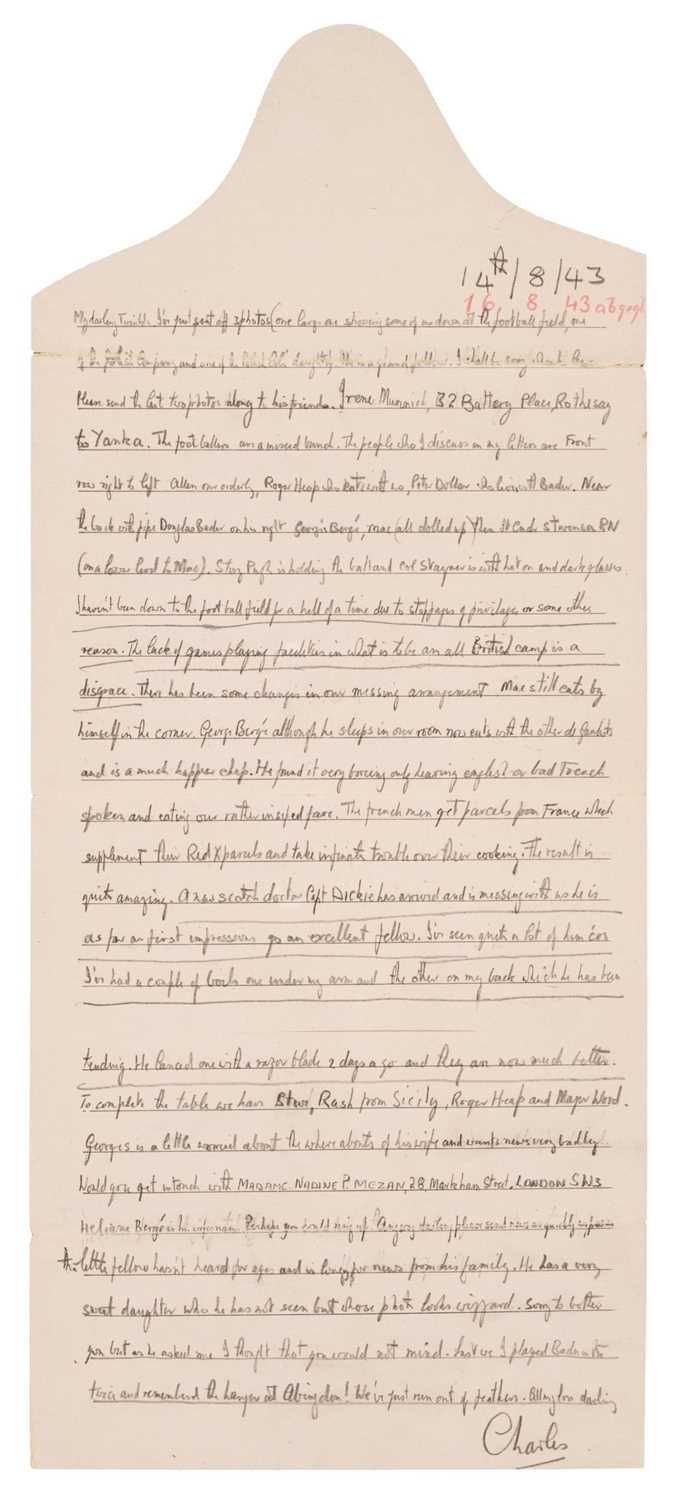 14th/8/43
16 8 43
My darling Twinkle I've just sent off 3 photos (one large one showing some of us down at the football field, one
of the Company and one of the daughter. He is a grand fellow. I shall be sorry
Please send the last two photos along to his friends. Irene Munnich, 32 Battery Place, Rothesay
to Yanka. The foot ballers are a mixed bunch. The people who I discuss in my letters are Front
row right to left Allen our orderly, Roger Heap who eats with us, Peter Dollar who lives with Bader. Near
the back with pipe Douglas Bader on his right Georges Bergé, Mac (all dolled up) then Lt Cmdr Stevenson RN
(on a lower level to Mac). Story Pugh is holding the ball and Col Stayner is with hat on and dark glasses
I haven't been down to the football field for a hell of a time due to stoppages of privileges or some other
reason. The lack of games playing facilities in what is to be an all British camp is a
disgrace. There has been some changes in our messing arrangement Mac still eats by
himself in the corner. George Bergé although he sleeps in our room now eats with the other de Gaulists
and is a much happier chap. He found it very boring only hearing english or bad French
spoken and eating our rather insiped fare. The french men get parcels from France which
supplement their Red X parcels and take infinate trouble over their cooking. The result is
quite amazing. A new scotch doctor Capt Dickie has arrived and is messing with us he is
as far as first impressions go an excellent fellow. I've seen quite a lot of him cos
I've had a couple of boils one under my arm and the other on my back which he has been
tending. He lanced one with a razor blade 2 days ago and they are now much better.
To complete the table we have Rash from Sicily, Roger Heap and Major Word.
Georges is a little worried about the where abouts of his wife and wants news very badly
Would you get in touch with MADAME NADINE P. MEZAN, 28, Markham Street, LONDON SW3
Heliane Bergé is his Perhaps you would ring up. Anyway darling, please send news as quickly as possible
The little fellow hasn't heard for ages and is longing for news from his family. He has a very
sweet daughter who he has not seen but whose photo looks wizzard. Sorry to bother
you but as he asked me I thought that you would not mind. Last we I played Badminton
twice and remembered the hanger at Abingdon! We've just run out of feathers. All my love darling
Charles